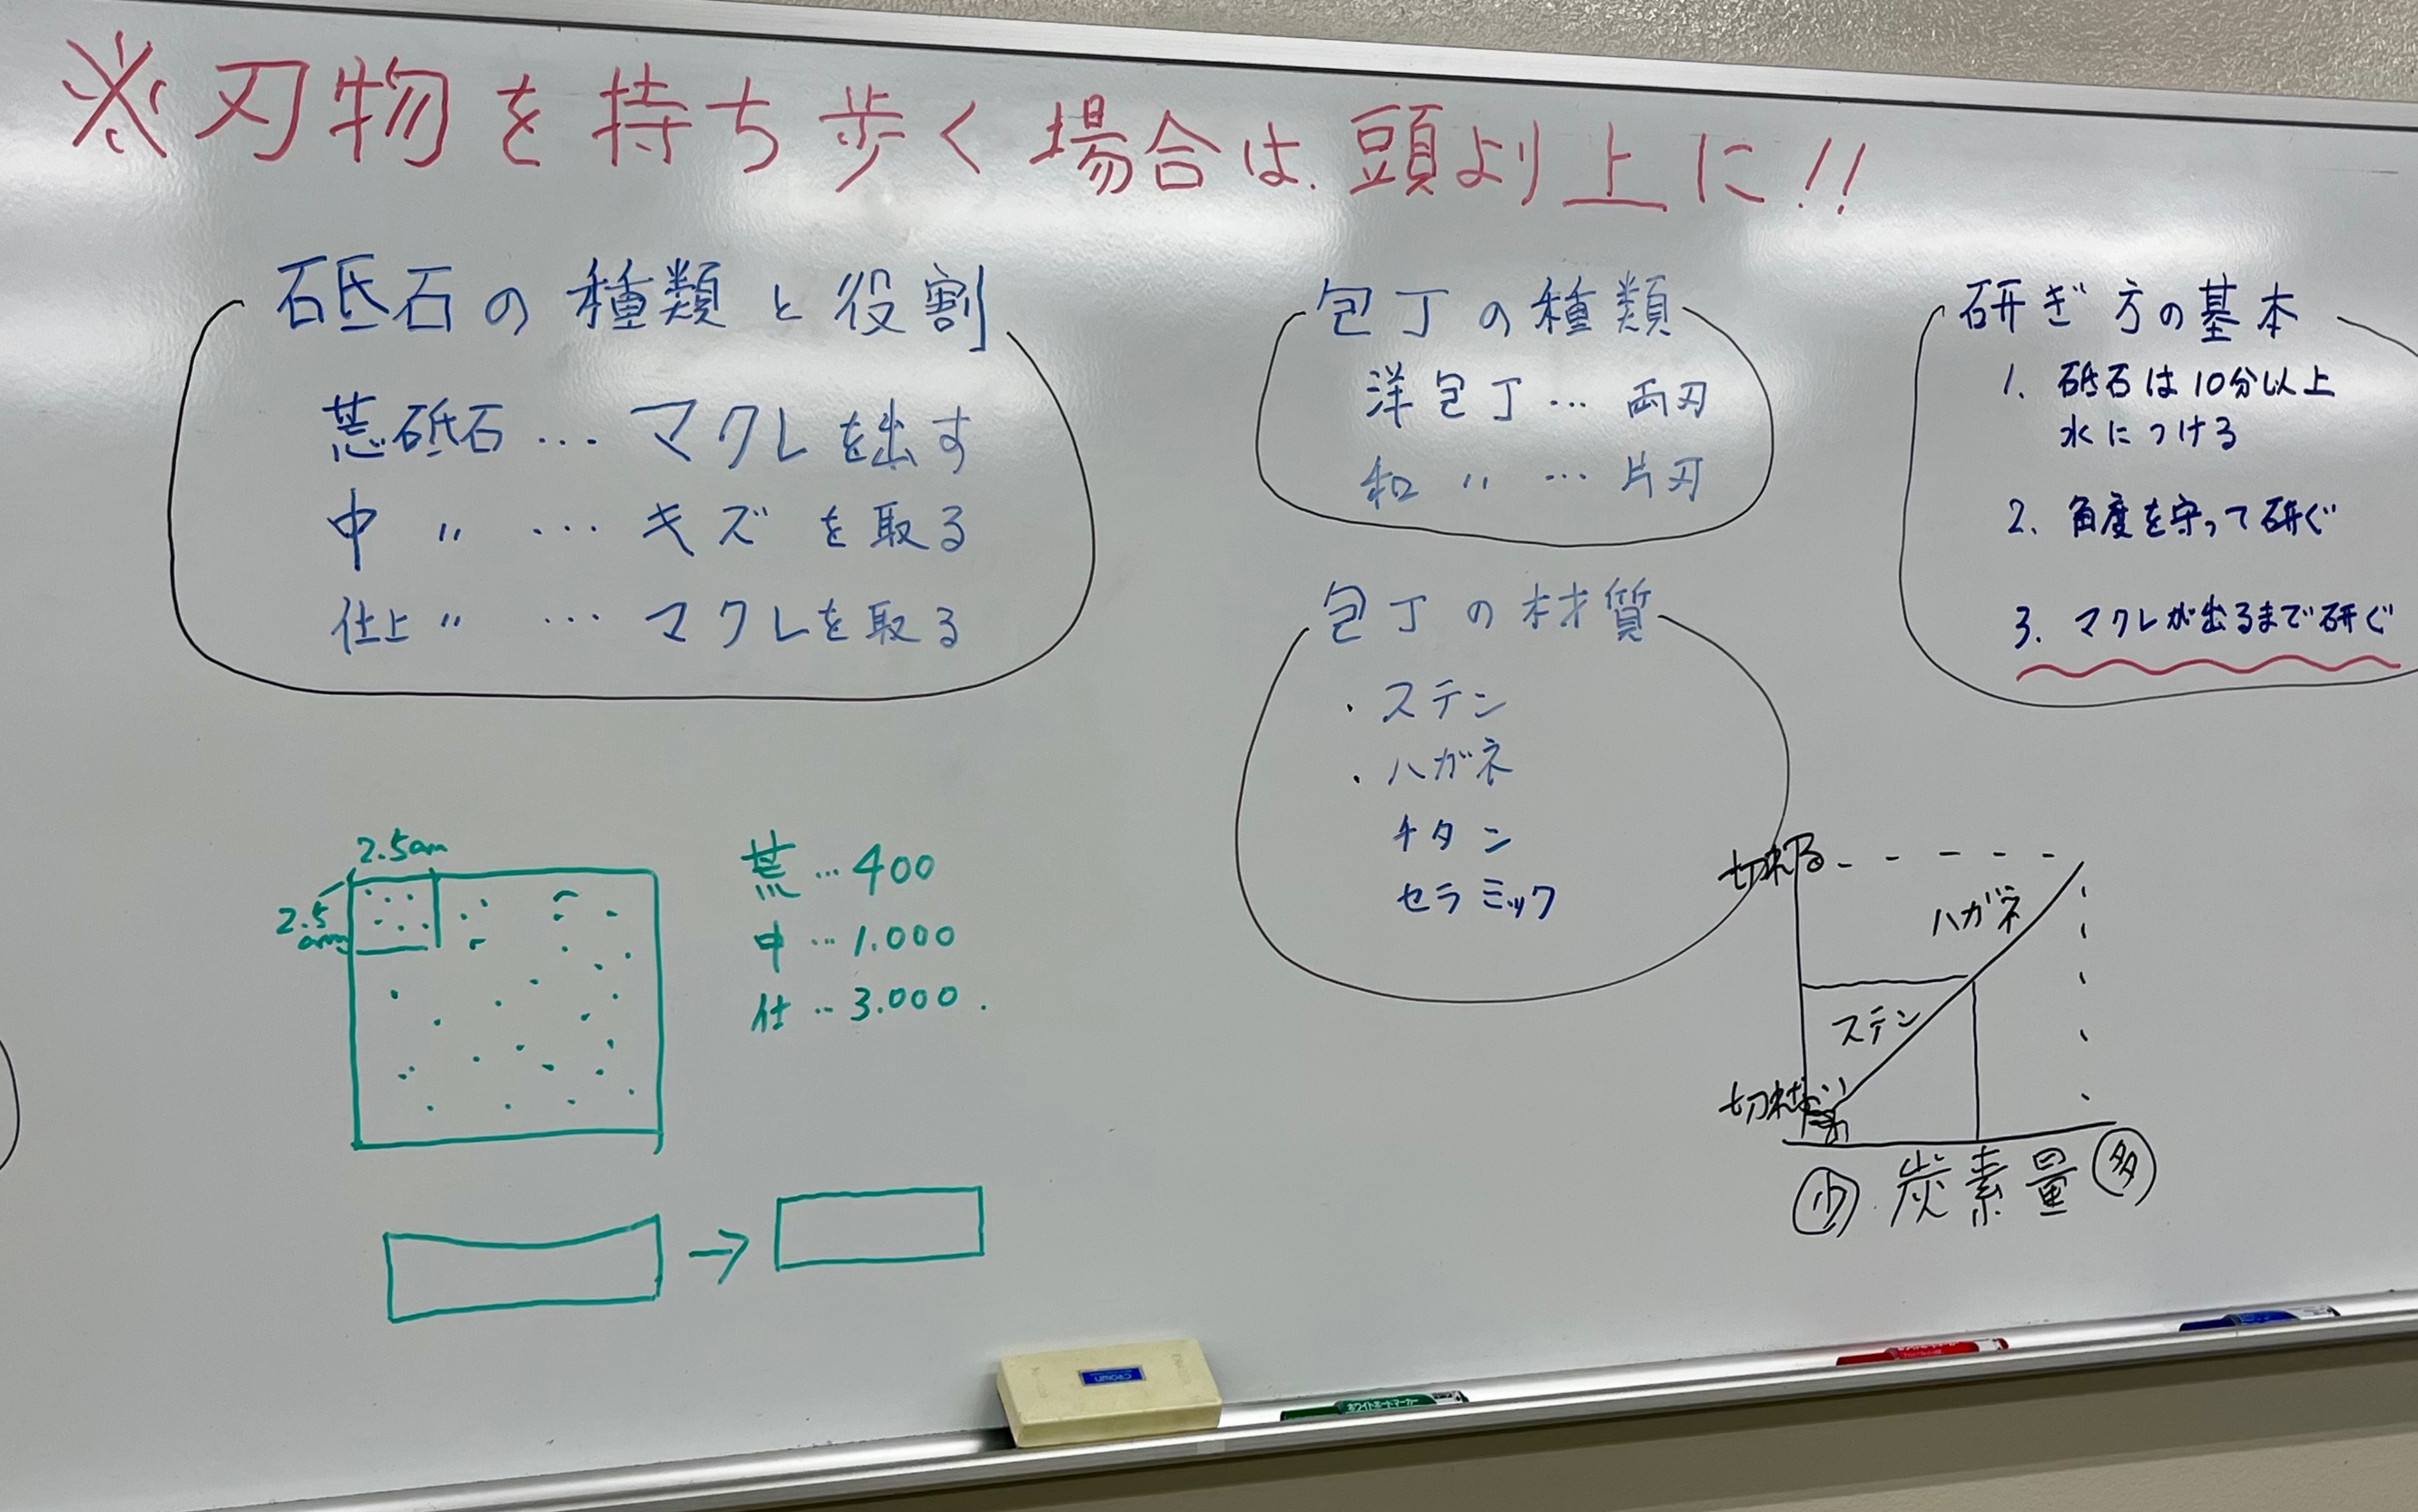 ※刃物を持ち歩く場合は、頭より上に!!
砥石の種類と役割
荒砥石…マクレを出す
中〃…キズを取る
仕上〃…マクレを取る
包丁の種類
洋包丁…両刃
和〃…片刃
包丁の材質
・ステン
・ハガネ
チタン
セラミック
研ぎ方の基本
1. 砥石は10分以上
水につける
2. 角度を守って研ぐ
3. マクレが出るまで研ぐ
2.5cm
2.5
cm
荒…400
中…1.000
仕…3.000.
切れる
ハガネ
ステン
切れない
少 炭素量 多
CROWN
ホワイトボードマーカー